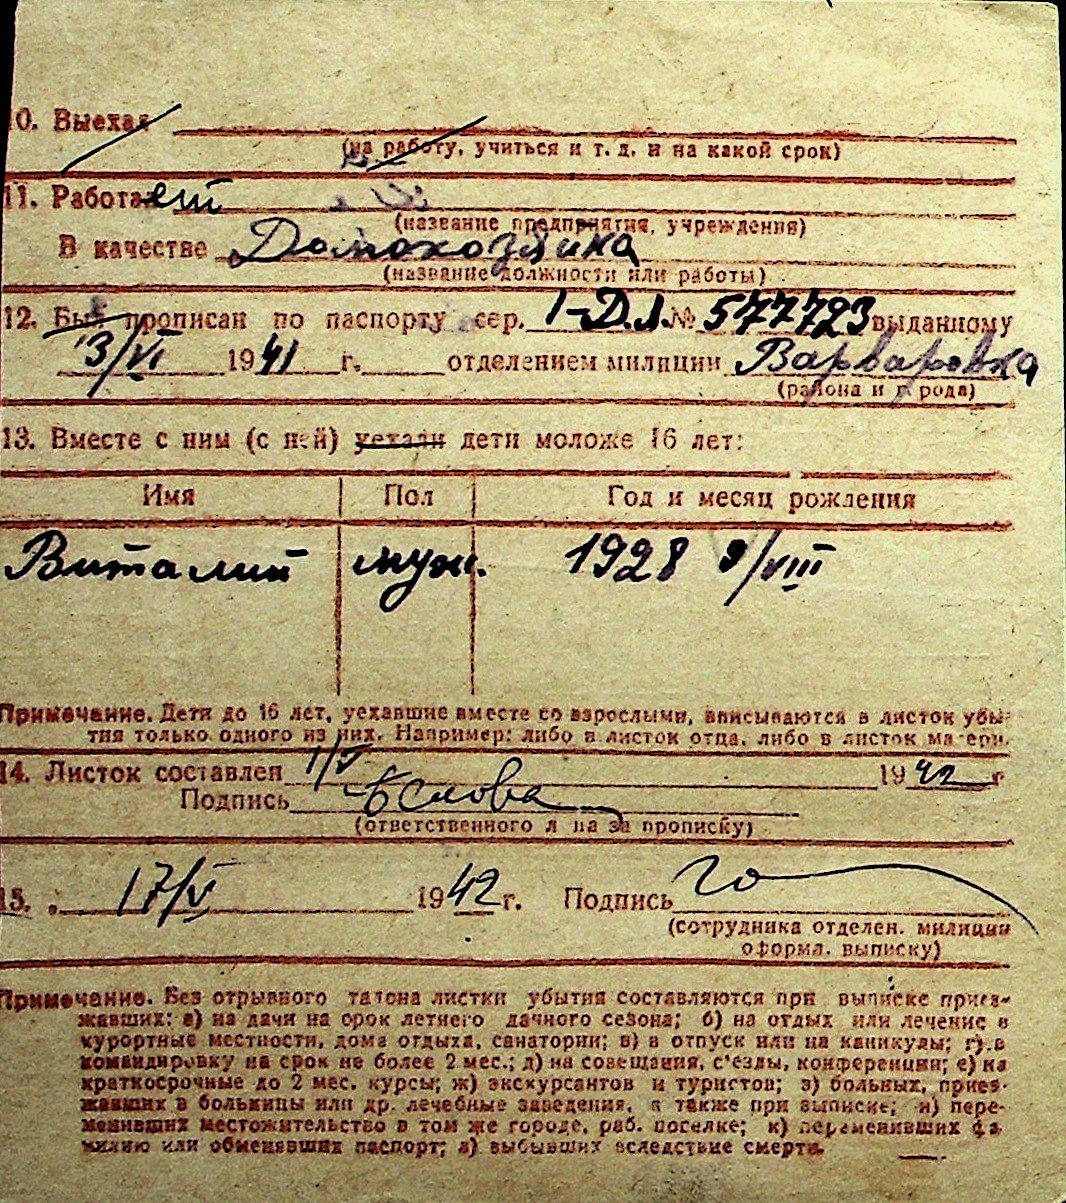 10. Выехал
(на работу, учиться и т. д. и на какой срок)
11. Работает
(название предприятия, учреждения)
В качестве Домохозяйка
(название должности или работы)
12. Был прописан по паспорту сер. 1-Д.Л. № 577723 выданному
13/VI 1941 г. отделением милиции Варваровка
(района и города)
13. Вместе с ним (с ней) уехали дети моложе 16 лет:
Имя Пол Год и месяц рождения
Виталий муж. 1928 9/VIII
Примечание. Дети до 16 лет, уехавшие вместе со взрослыми, вписываются в листок убы-
тия только одного из них. Например: либо в листок отца, либо в листок матери.
14. Листок составлен 1/V 1942 г
Подпись
(ответственного лица за прописку)
15. 17/V 1942 г. Подпись
(сотрудника отделен. милиции
оформл. выписку)
Примечание. Без отрывного талона листки убытия составляются при выписке приез-
жавших: а) на дачи на срок летнего дачного сезона; б) на отдых или лечение в
курортные местности, дома отдыха, санатории; в) в отпуск или на каникулы; г) в
командировку на срок не более 2 мес.; д) на совещания, с'езды, конференции; е) на
краткосрочные до 2 мес. курсы; ж) экскурсантов и туристов; з) больных, приез-
жавших в больницы или др. лечебные заведения, а также при выписке; и) пере-
менивших местожительство в том же городе, раб. поселке; к) переменивших фа-
милию или обменявших паспорт; л) выбывших вследствие смерти.